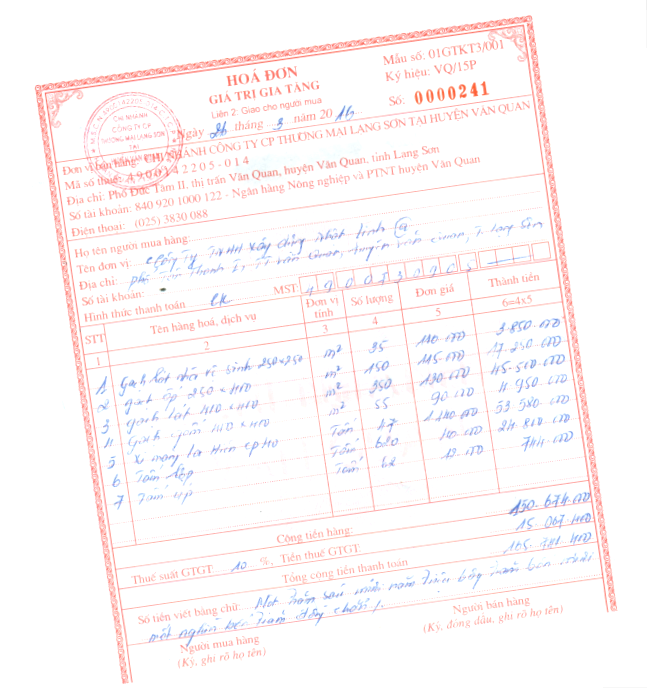 HOÁ ĐƠN
GIÁ TRỊ GIA TĂNG
Liên 2: Giao cho người mua
Ngày 26 tháng 3 năm 2016
Mẫu số: 01GTKT3/001
Ký hiệu: VQ/15P
Số: 0000241
CHI NHÁNH
CÔNG TY CP
THƯƠNG MẠI LẠNG SƠN
TẠI
Đơn vị bán hàng: CHI NHÁNH CÔNG TY CP THƯƠNG MẠI LẠNG SƠN TẠI HUYỆN VĂN QUAN
Mã số thuế: 4900142205-014
Địa chỉ: Phố Đức Tâm II, thị trấn Văn Quan, huyện Văn Quan, tỉnh Lạng Sơn
Số tài khoản: 840 920 1000 122 - Ngân hàng Nông nghiệp và PTNT huyện Văn Quan
Điện thoại: (025) 3830 088
Họ tên người mua hàng:
Tên đơn vị: Công ty TNHH xây dựng
Địa chỉ: phố TT Văn Quan, huyện Văn Quan, T. Lạng Sơn
Số tài khoản:
Hình thức thanh toán CK MST:
STT Tên hàng hoá, dịch vụ Đơn vị tính Số lượng Đơn giá Thành tiền
1 2 3 4 5 6=4x5
1 Gạch lát vệ sinh 250×250 m² 35 110.000 3.850.000
2 gạch ốp 250×400 m² 150 115.000 17.250.000
3 gạch lát 400×400 m² 350 130.000 45.500.000
4 Gạch 400×400 m² 55 90.000 4.950.000
5 Xi măng Tấn 47 1.140.000 53.580.000
6 Tấm lợp Tấm 620 40.000 24.800.000
7 Tấm úp Tấm 62 12.000 744.000
Cộng tiền hàng: 150.674.000
Thuế suất GTGT 10 %, Tiền thuế GTGT: 15.067.400
Tổng cộng tiền thanh toán 165.741.400
Số tiền viết bằng chữ: Một trăm sáu mươi năm triệu bảy trăm bốn mươi
một nghìn bốn trăm đồng chẵn /
Người mua hàng
(Ký, ghi rõ họ tên)
Người bán hàng
(Ký, đóng dấu, ghi rõ họ tên)